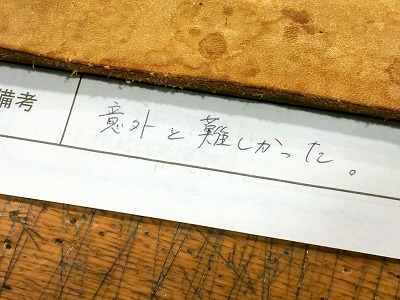 備考
意外と難しかった。